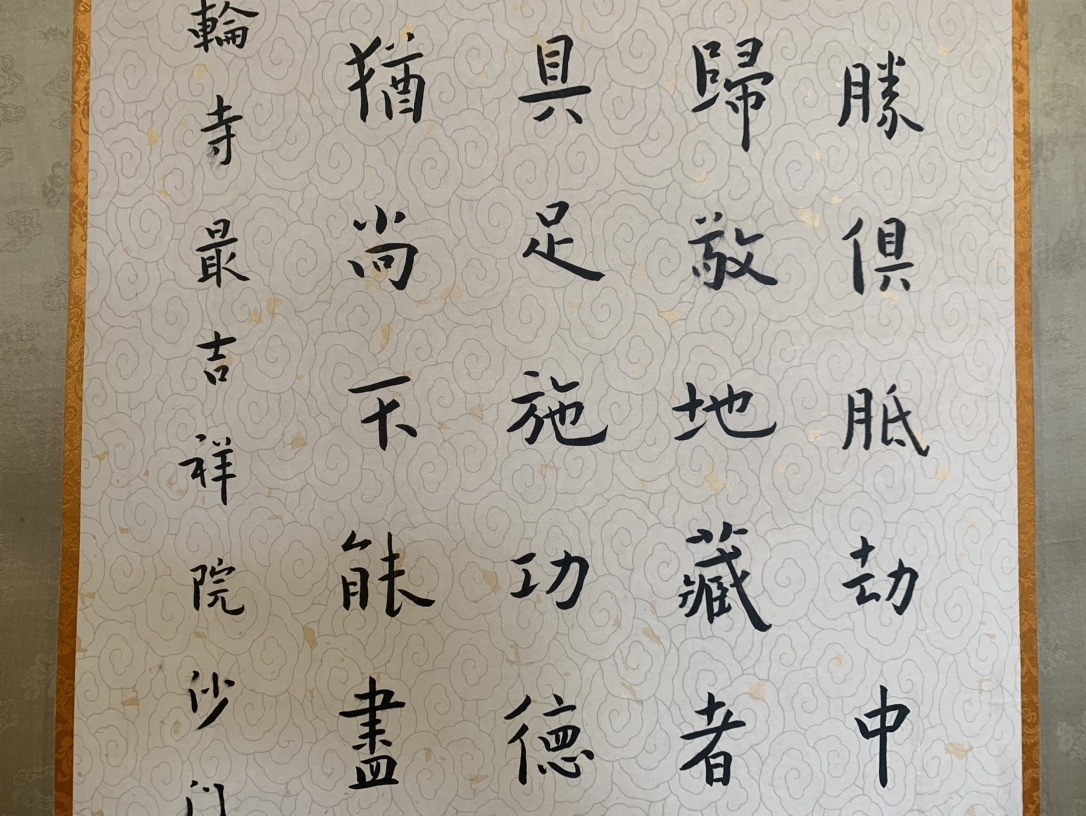 勝俱胝劫中
歸敬地藏者
具足施功德
猶尚不能盡
輪寺最吉祥院沙门